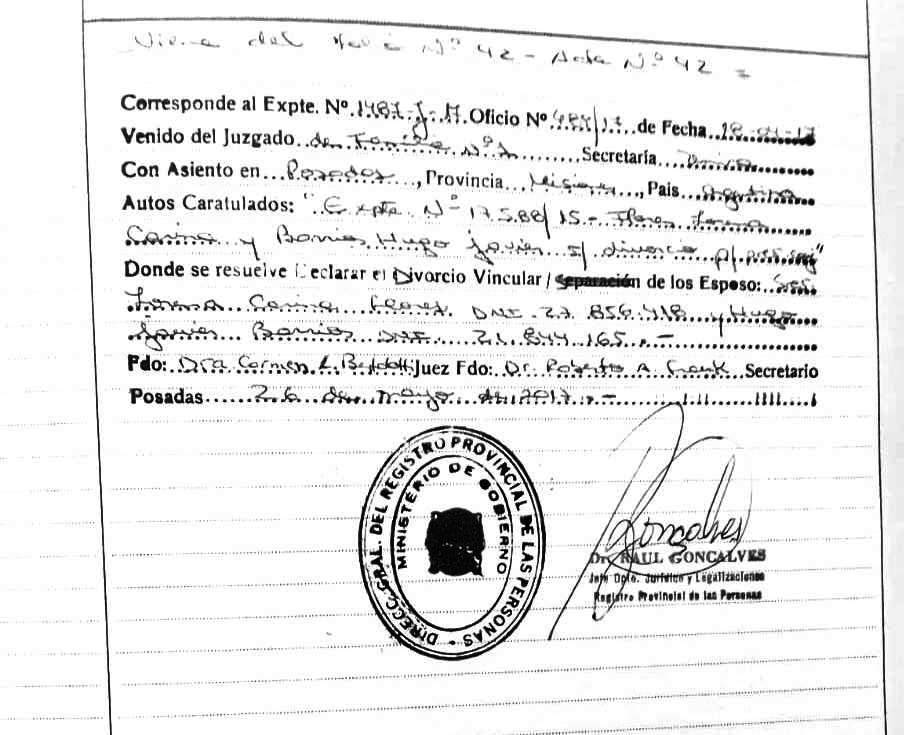 Viene del Folio Nº 42 - Acta Nº 42 =
Corresponde al Expte. Nº 1487-J-17 Oficio Nº 484/17 de Fecha 18-04-17
Venido del Juzgado de Familia Nº 1 Secretaría Única
Con Asiento en Posadas, Provincia Misiones, País Argentina
Autos Caratulados: "Expte. Nº 17588/15 - Flores Lorena
Carina y Barrios Hugo Javier s/ divorcio p/
Donde se resuelve Declarar el Divorcio Vincular / separación de los Esposo: Sres.
Lorena Carina Flores DNI 27.856.418 y Hugo
Javier Barrios DNI 21.844.165.-
Fdo: Dra Carmen Juez Fdo: Dr. Roberto A. Secretario
Posadas 26 de Mayo de 2017.-
DIRECC. GRAL. DEL REGISTRO PROVINCIAL DE LAS PERSONAS
MINISTERIO DE GOBIERNO
Goncalves
Dr. RAUL GONCALVES
Jefe Dpto. Jurídico y Legalizaciones
Registro Provincial de las Personas